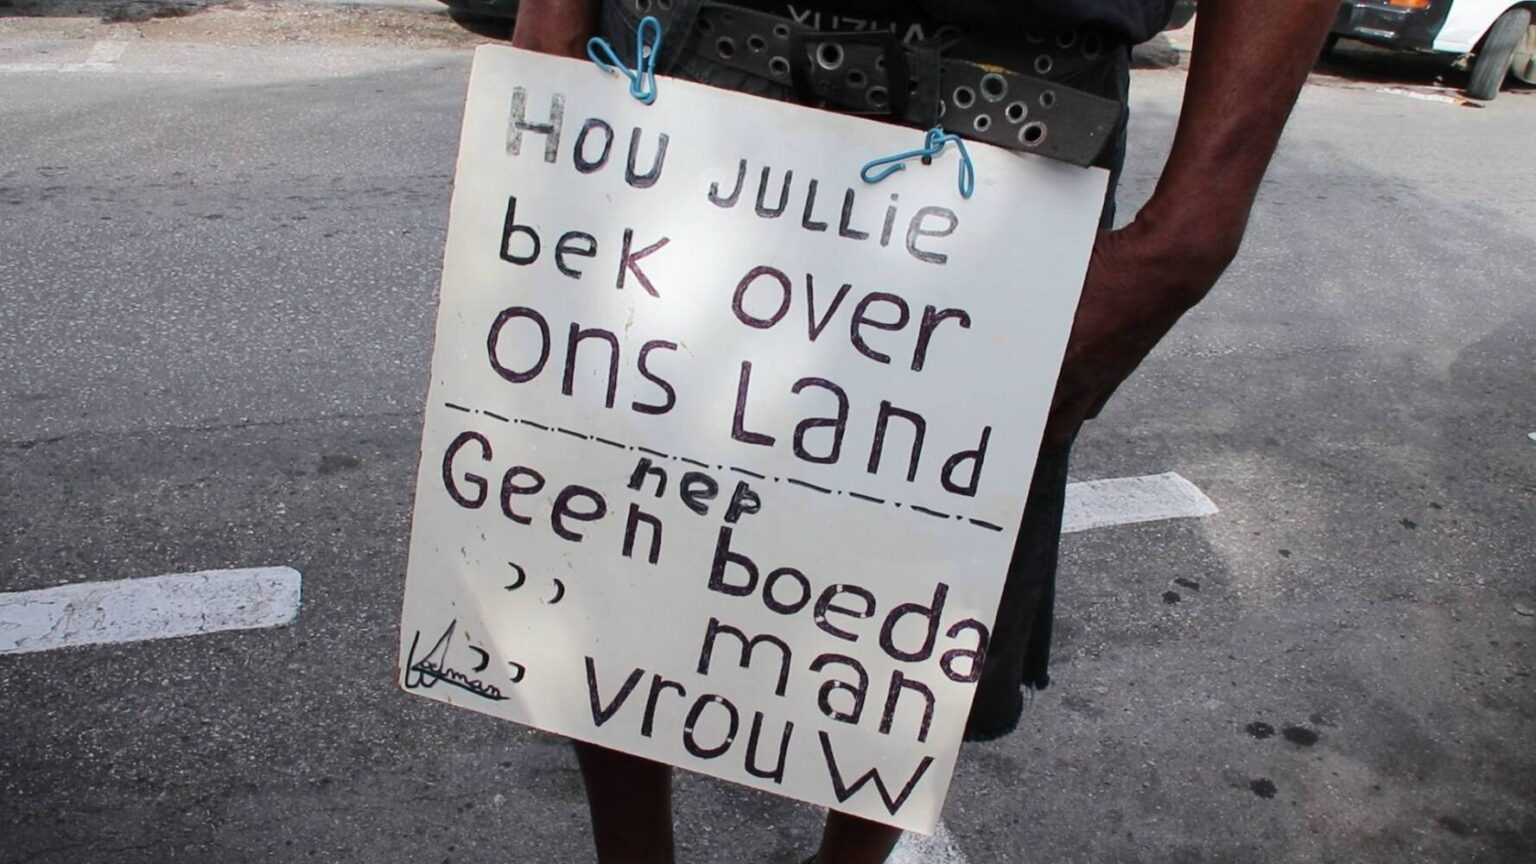 HOU JULLie
bek over
ons Land
nep
Geen boeda
,, man
,, vrouw